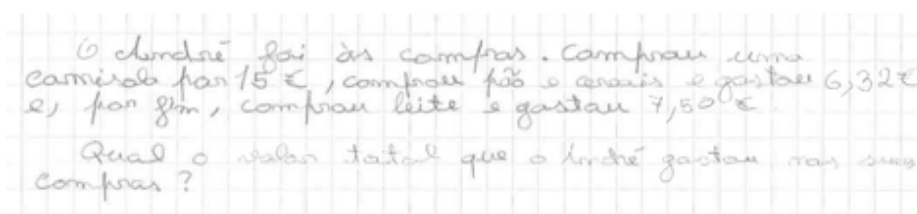 O André foi às compras. Comprou uma
camisola por 15 €, comprou pão e cereais e gastou 6,32€
e, por fim, comprou leite e gastou 7,50 €
Qual o valor total que o André gastou nas suas
compras?